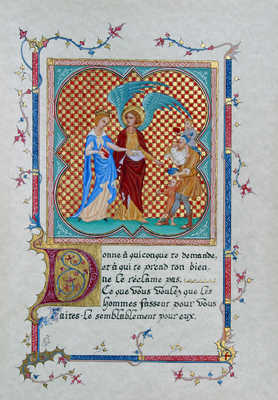 Donne à quiconque te demande,
et à qui te prend ton bien
ne le réclame pas.
Ce que vous voulez que les
hommes fassent pour vous
faites-le semblablement pour eux.